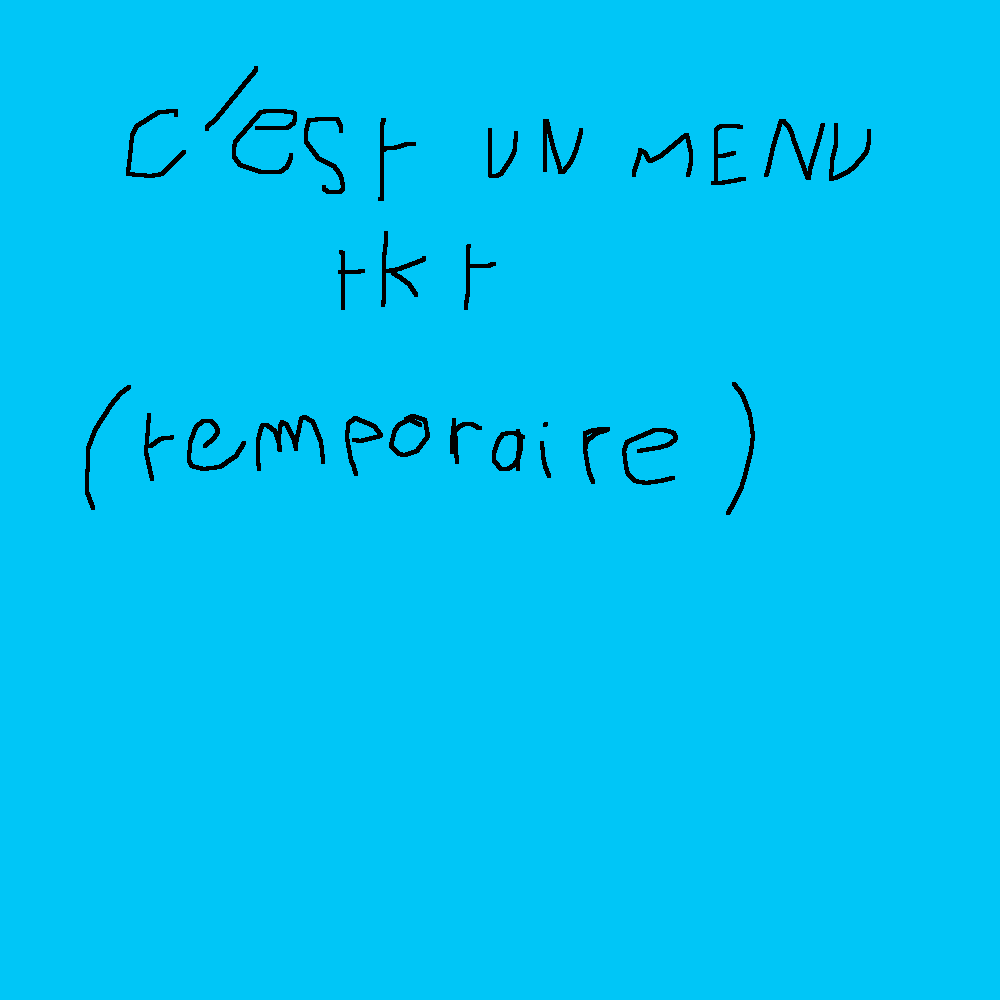 c'est UN MENU
tkt
(temporaire)